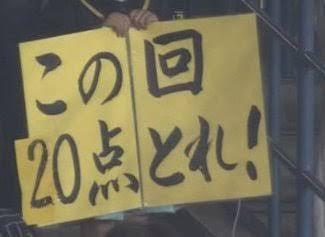 この回
20点とれ!